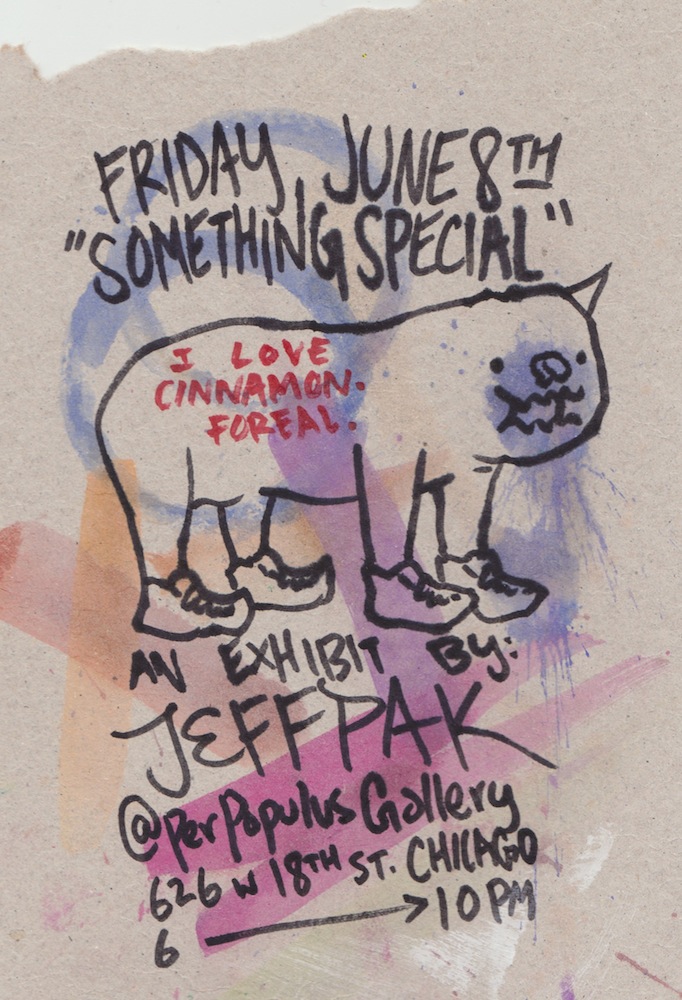 FRIDAY, JUNE 8TH
"SOMETHING SPECIAL"
I LOVE
CINNAMON.
FOREAL.
AN EXHIBIT BY:
JEFF PAK
@ Per Populus Gallery
626 W 18TH ST. CHICAGO
6 → 10 PM